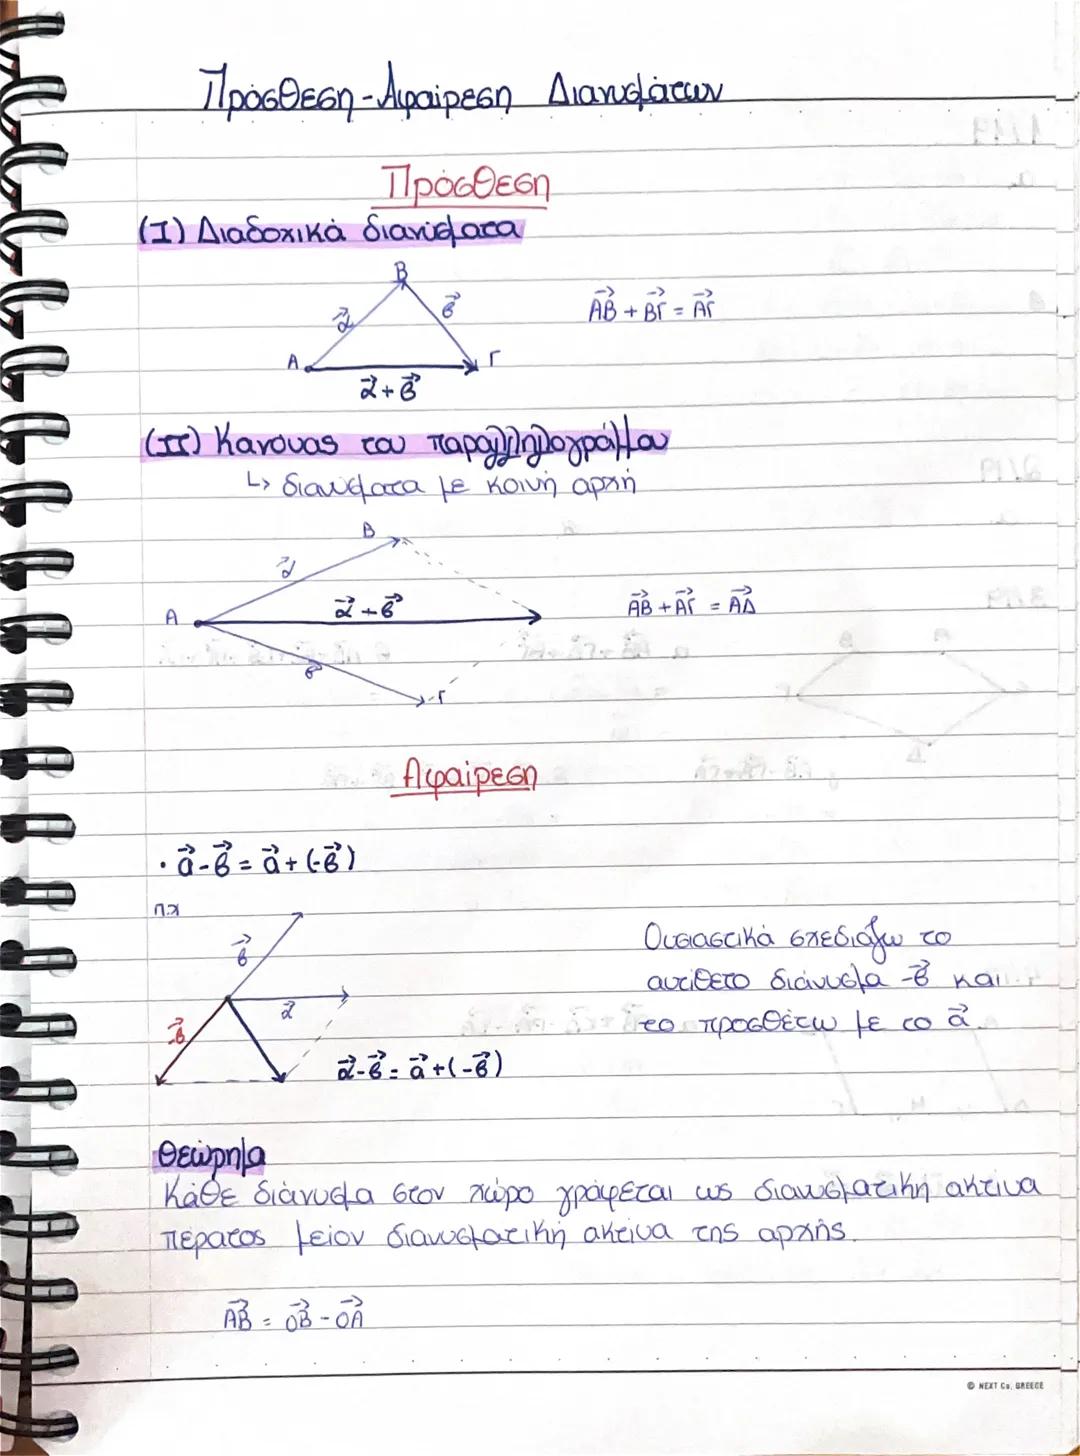 Πρόσθεση-Αφαίρεση Διανυσμάτων
Πρόσθεση
(I) Διαδοχικά διανύσματα
B
α⃗
β⃗
A
Γ
α⃗+β⃗
AB⃗ + BΓ⃗ = AΓ⃗
(II) Κανόνας του παραλληλογράμμου
↳ διανύσματα με κοινή αρχή
B
α⃗
A
α⃗+β⃗
β⃗
Γ
AB⃗ + AΓ⃗ = AΔ⃗
Αφαίρεση
· α⃗-β⃗ = α⃗+(-β⃗)
π.χ
β⃗
α⃗
-β⃗
α⃗-β⃗ = α⃗+(-β⃗)
Ουσιαστικά σχεδιάζω το
αντίθετο διάνυσμα -β⃗ και
το προσθέτω με το α⃗.
Θεώρημα
Κάθε διάνυσμα στον χώρο γράφεται ως διανυσματική ακτίνα
πέρατος μείον διανυσματική ακτίνα της αρχής.
AB⃗ = OB⃗ - OA⃗
© NEXT Co. GREECE